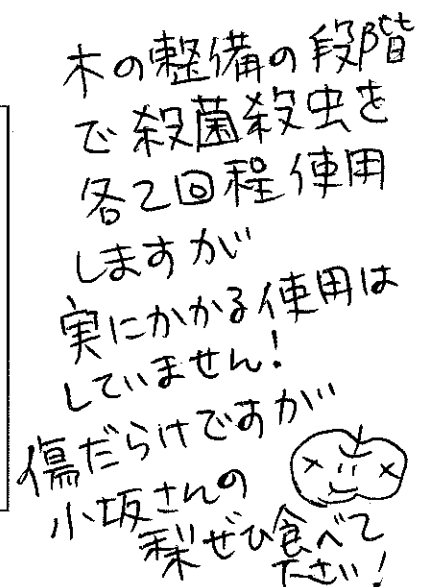 木の整備の段階
で殺菌殺虫を
各2回程使用
しますが
実にかかる使用は
していません!
傷だらけですが
小坂さんの
梨ぜひ食べて
下さい!